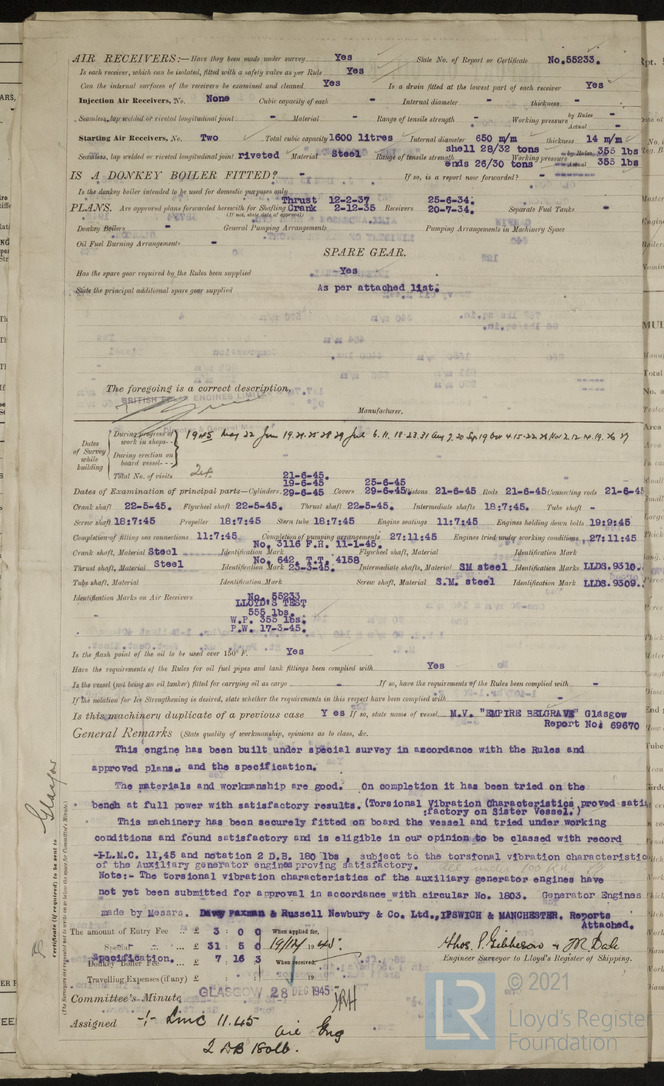 AIR RECEIVERS:—Have they been made under survey Yes State No. of Report or Certificate No.55233.
Is each receiver, which can be isolated, fitted with a safety valve as per Rule Yes
Can the internal surfaces of the receivers be examined and cleaned Yes Is a drain fitted at the lowest part of each receiver Yes
Injection Air Receivers, No. None Cubic capacity of each - Internal diameter - thickness -
Seamless, lap welded or riveted longitudinal joint - Material - Range of tensile strength - Working pressure by Rules - Actual -
Starting Air Receivers, No. Two Total cubic capacity 1600 litres Internal diameter 650 m/m thickness 14 m/m
Seamless, lap welded or riveted longitudinal joint riveted Material Steel Range of tensile strength shell 28/32 tons ends 26/30 tons Working pressure by Rules 355 lbs Actual 355 lbs
IS A DONKEY BOILER FITTED? - If so, is a report now forwarded? -
Is the donkey boiler intended to be used for domestic purposes only -
PLANS. Are approved plans forwarded herewith for Shafting Thrust 12-2-37 Crank 2-12-35 Receivers 25-6-34. 20-7-34. Separate Fuel Tanks -
(If not, state date of approval)
Donkey Boilers - General Pumping Arrangements Pumping Arrangements in Machinery Space
Oil Fuel Burning Arrangements -
SPARE GEAR.
Has the spare gear required by the Rules been supplied Yes
State the principal additional spare gear supplied As per attached list.
The foregoing is a correct description,
Manufacturer.
Dates of Survey while building
During progress of work in shops--
During erection on board vessel---
Total No. of visits
Dates of Examination of principal parts—Cylinders 21-6-45. 19-6-45. 29-6-45 Covers 25-6-45 29-6-45 Pistons 21-6-45 Rods 21-6-45 Connecting rods 21-6-45
Crank shaft 22-5-45. Flywheel shaft 22-5-45. Thrust shaft 22-5-45. Intermediate shafts 18:7:45. Tube shaft -
Screw shaft 18:7:45 Propeller 18:7:45 Stern tube 18:7:45 Engine seatings 11:7:45 Engines holding down bolts 19:9:45
Completion of fitting sea connections 11:7:45 Completion of pumping arrangements 27:11:45 Engines tried under working conditions 27:11:45
Crank shaft, Material Steel Identification Mark No. 3116 F.H. 11-1-45. Flywheel shaft, Material Identification Mark
Thrust shaft, Material Steel Identification Mark No. 642 T.T. 4158 23-3-45. Intermediate shafts, Material SM steel Identification Mark LLDS.9310.
Tube shaft, Material Identification Mark Screw shaft, Material S.M. steel Identification Mark LLDS.9309.
Identification Marks on Air Receivers No. 55233
LLOYD'S TEST
555 lbs.
W.P. 355 lbs.
P.W. 17-3-45.
Is the flash point of the oil to be used over 150° F. Yes
Have the requirements of the Rules for oil fuel pipes and tank fittings been complied with Yes
Is the vessel (not being an oil tanker) fitted for carrying oil as cargo - If so, have the requirements of the Rules been complied with -
If the notation for Ice Strengthening is desired, state whether the requirements in this respect have been complied with -
Is this machinery duplicate of a previous case Yes If so, state name of vessel M.V. "EMPIRE BELGRAVE" Glasgow
Report No: 69670
General Remarks (State quality of workmanship, opinions as to class, &c.
This engine has been built under special survey in accordance with the Rules and
approved plans. and the specification.
The materials and workmanship are good. On completion it has been tried on the
bench at full power with satisfactory results. (Torsional Vibration Characteristics, proved satis
:factory on Sister Vessel.)
This machinery has been securely fitted on board the vessel and tried under working
conditions and found satisfactory and is eligible in our opinion to be classed with record
-I-L.M.C. 11,45 and notation 2 D.B. 180 lbs, subject to the torsional vibration characteristic
of the Auxiliary generator engines proving satisfactory.
Note:- The torsional vibration characteristics of the auxiliary generator engines have
not yet been submitted for approval in accordance with circular No. 1803. Generator Engines
made by Messrs. Davey Paxman & Russell Newbury & Co. Ltd., IPSWICH & MANCHESTER. Reports
Attached.
The amount of Entry Fee .. £ 3 : 0 : 0 When applied for,
Special ... £ 31 : 5 : 0
Specification. 7 : 16 : 3 When received,
Donkey Boiler Fee
Travelling Expenses (if any) £
Engineer Surveyor to Lloyd's Register of Shipping.
Committee's Minute GLASGOW 28 DEC 1945
Assigned + LMC 11.45
Oil Eng
2 DB 180 lb.
Glasgow
Certificate (if required) to be sent to
(The Surveyors are requested not to write on or below the space for Committee's Minute.)
© 2021
LR
Lloyd's Register
Foundation